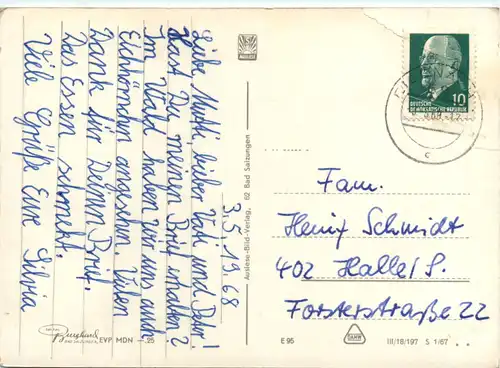 3.5.1968
Liebe Mutti, lieber Vati und Peter!
Hast Du meinen Brief erhalten?
Im Wald haben wir uns auch
Eichhörnchen angesehen. Vielen
Dank für Deinen Brief.
Das Essen schmeckt.
Viele Grüße Eure Silvia
Burghard
EVP MDN —.25
Auslese-Bild-Verlag, 62 Bad Salzungen
10
DEUTSCHE
DEMOKRATISCHE REPUBLIK
c
Fam.
Heinz Schmidt
402 Halle/S.
Forsterstraße 22
E 95
III/18/197 S 1/67